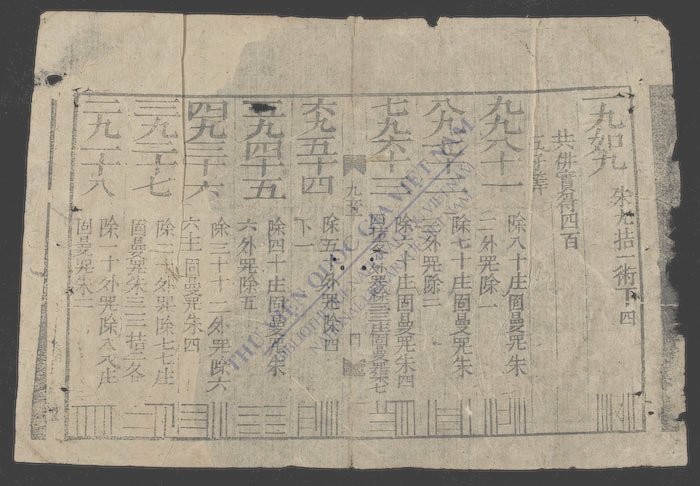 一九如九
朱 拮一術下四
共併實得四百
五
九九八十一
除八十庄固曼兕朱
二外兕除一
八九 二
除七十庄固曼兕朱
三外兕除二
七九六十三
除六十庄固曼兕朱四
九五
六九五十四
除五 外兕除四
下一
九四十五
除四十庄固曼兕朱
六外兕除五
四九三十六
除三十十二外兕除六
六主固曼兕朱四
三九二十七
除二十外兕除七七庄
固曼兕朱三三拮二各
二九一十八
除一十外兕除八 庄
固曼兕朱二
THƯ VIỆN QUỐC GIA VIỆT NAM
NATIONAL LIBRARY OF VIETNAM